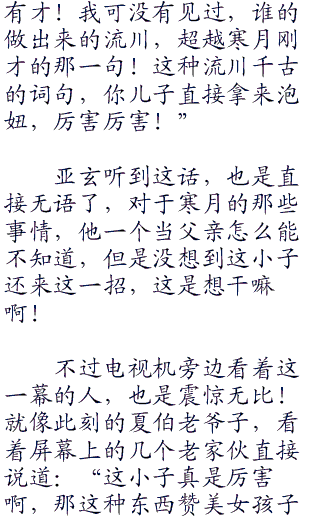 有才！我可没有见过，谁的
做出来的流川，超越寒月刚
才的那一句！这种流川千古
的词句，你儿子直接拿来泡
妞，厉害厉害！”
亚玄听到这话，也是直
接无语了，对于寒月的那些
事情，他一个当父亲怎么能
不知道，但是没想到这小子
还来这一招，这是想干嘛
啊！
不过电视机旁边看着这
一幕的人，也是震惊无比！
就像此刻的夏伯老爷子，看
着屏幕上的几个老家伙直接
说道：“这小子真是厉害
啊，那这种东西赞美女孩子